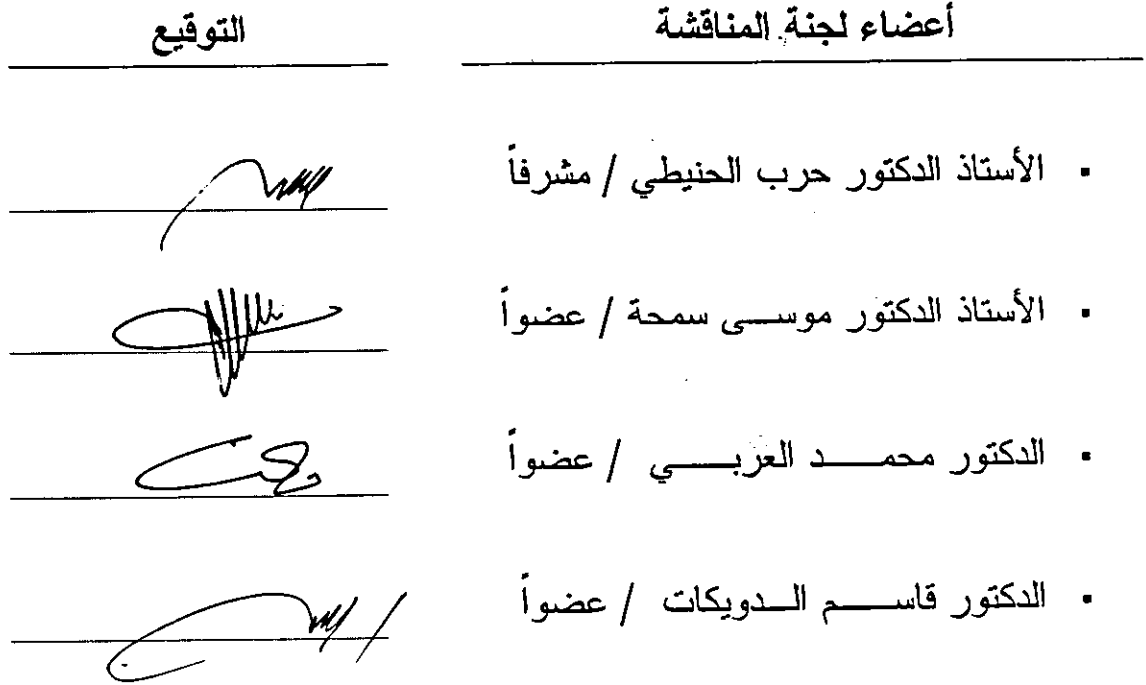 أعضاء لجنة المناقشة التوقيع
▪ الأستاذ الدكتور حرب الحنيطي / مشرفاً
▪ الأستاذ الدكتور موســى سمحة / عضواً
▪ الدكتور محمــــد العربــــــي / عضواً
▪ الدكتور قاســــم الــدويكات / عضواً